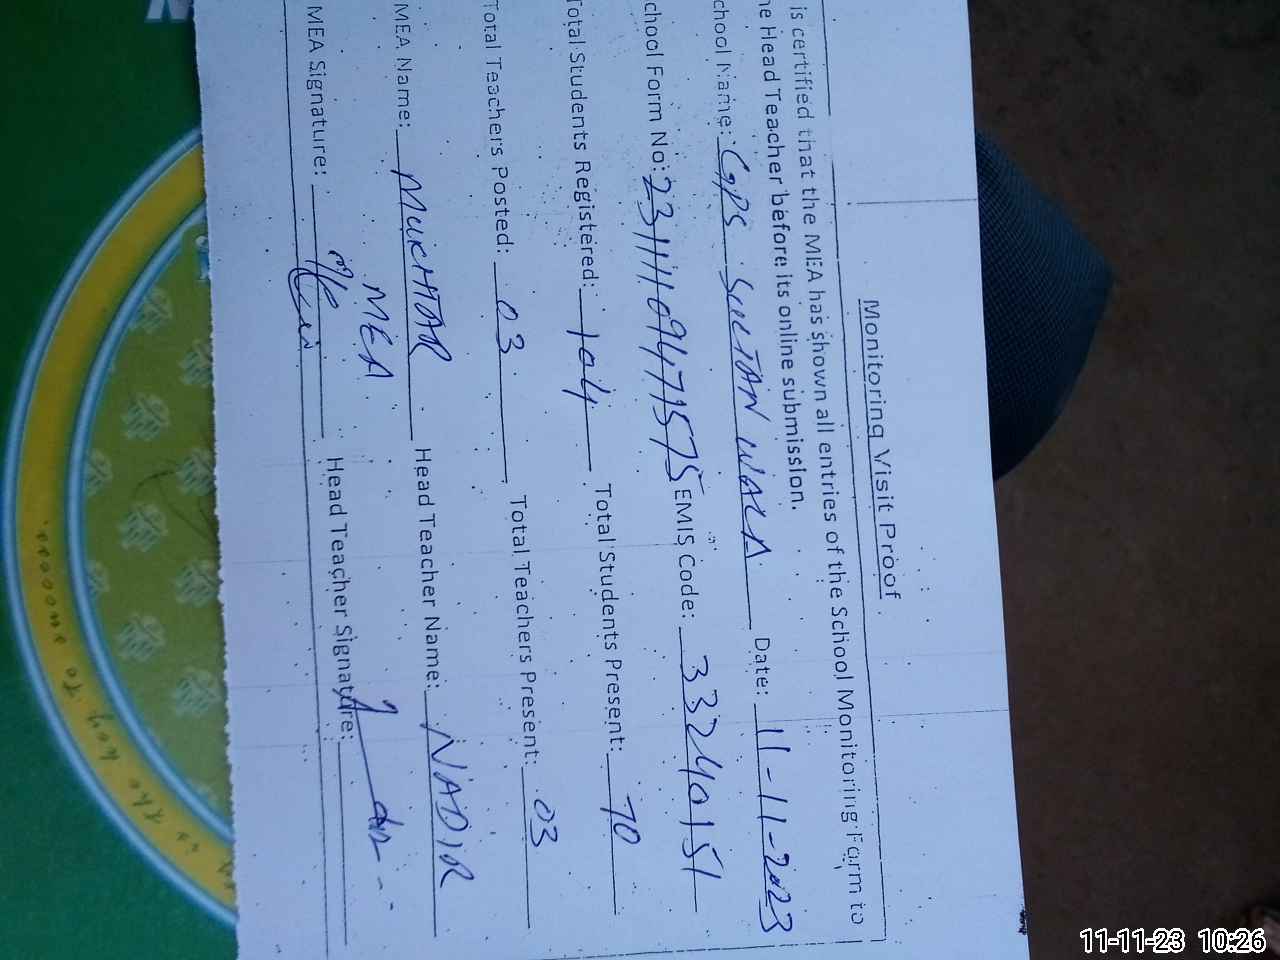 Monitoring Visit Proof
is certified that the MEA has shown all entries of the School Monitoring Form to
he Head Teacher before its online submission.
chool Name: GPS SULTAN WALA Date: 11-11-2023
chool Form No: EMIS Code: 33240151
Total Students Registered: 104 Total Students Present: 70
Total Teachers Posted: 03 Total Teachers Present: 03
MEA Name: MUKHTAR Head Teacher Name: NADIR
MEA
MEA Signature: Head Teacher Signature:
is the key to success.
11-11-23 10:26